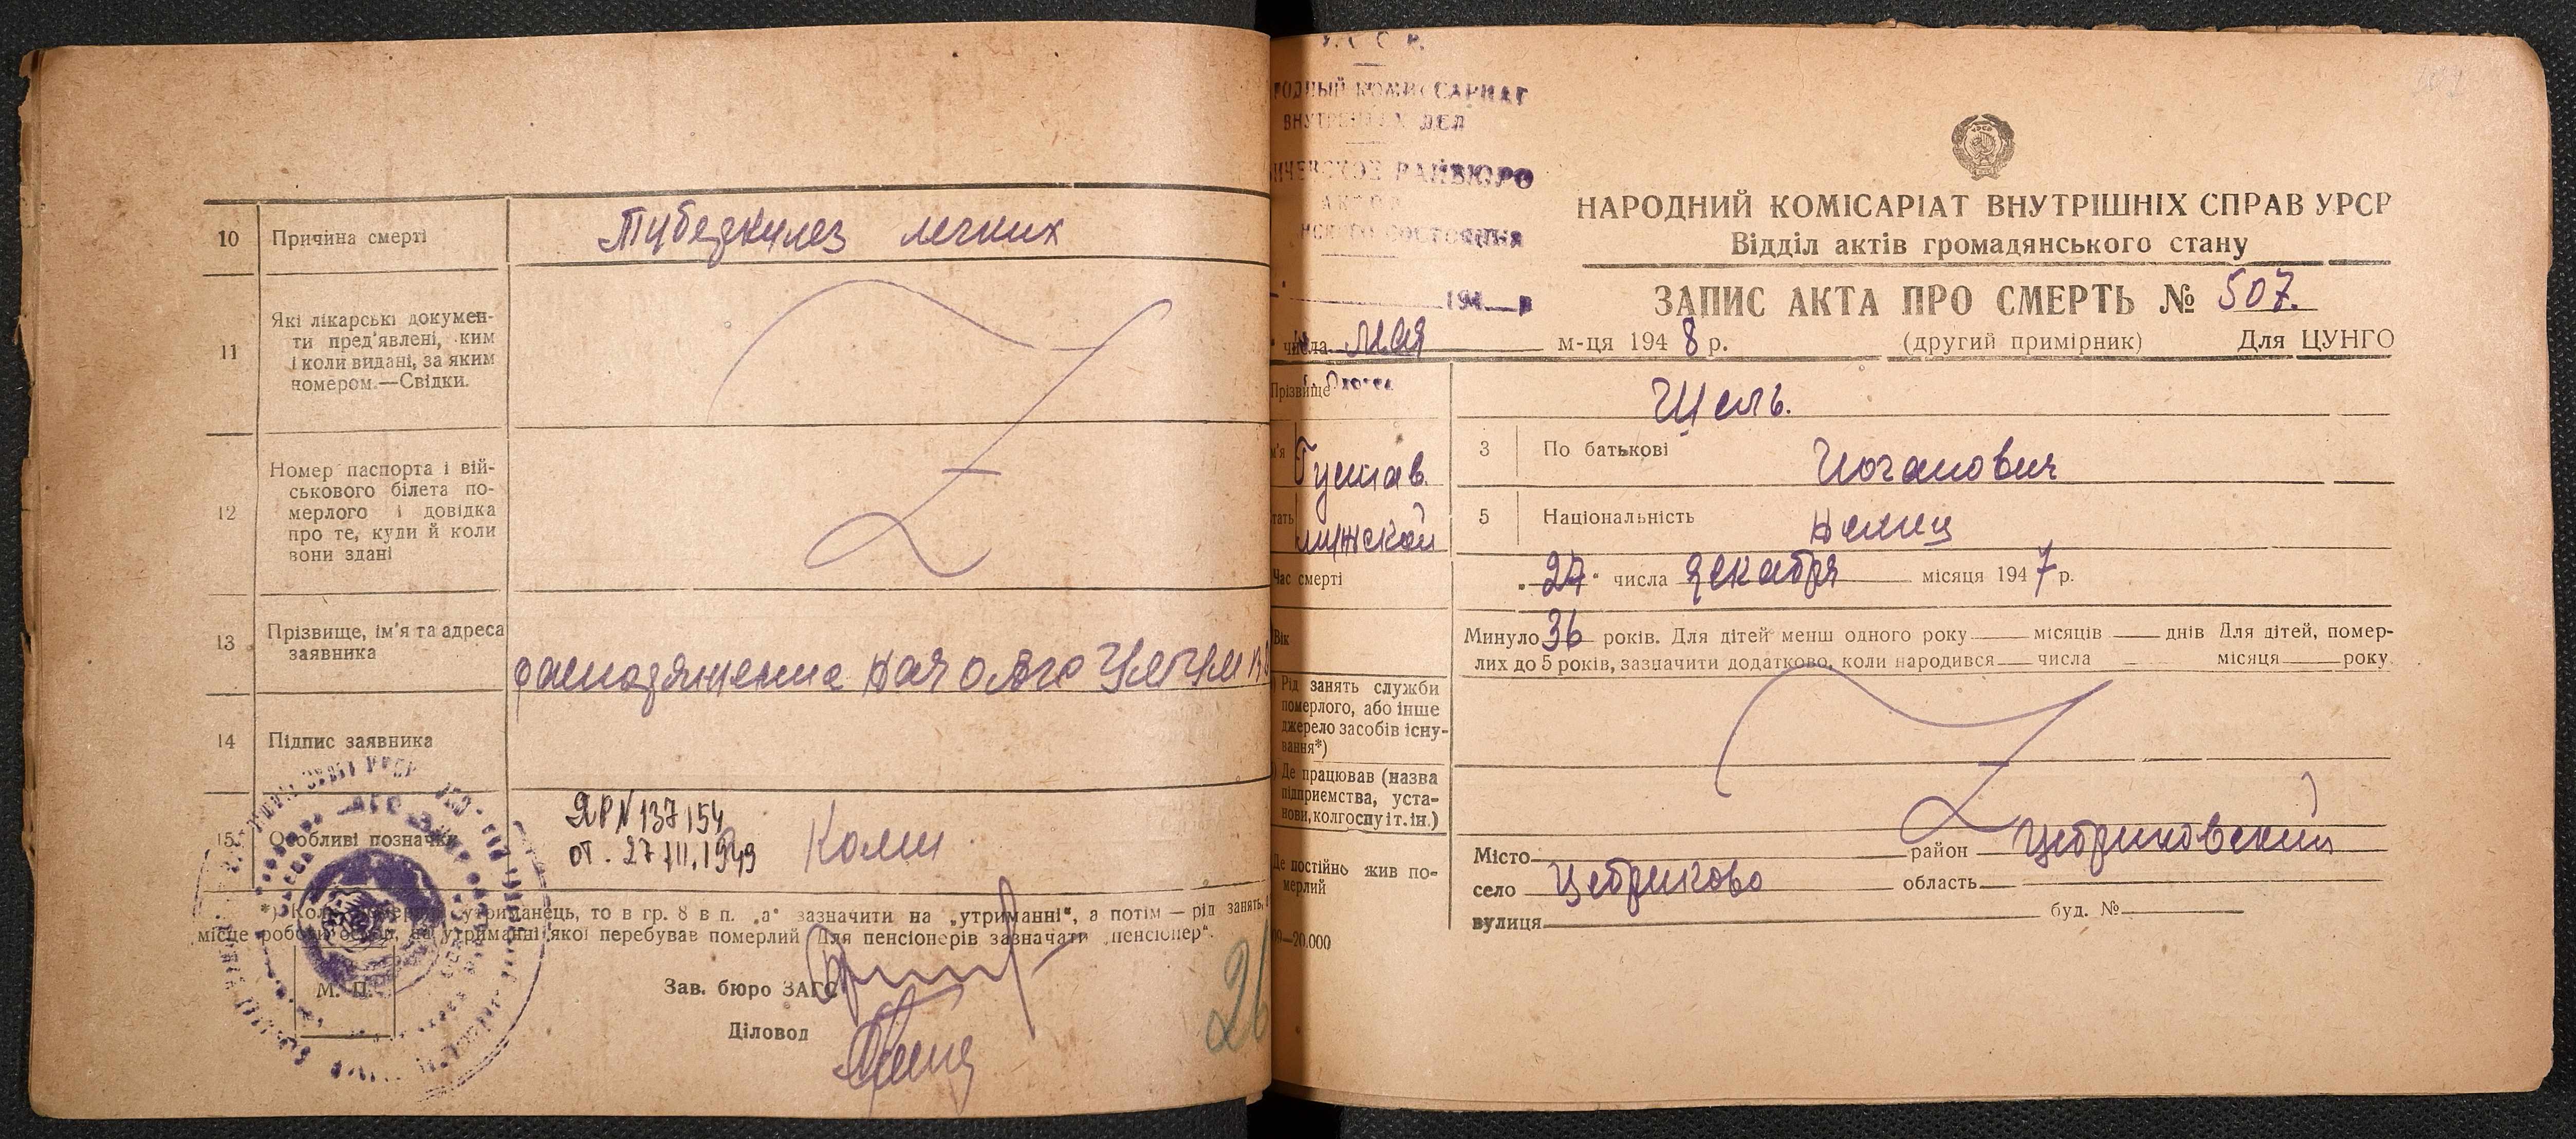 10 Причина смерті Туберкулез легких
11 Які лікарські докумен-
ти пред'явлені, ким
і коли видані, за яким
номером.—Свідки.
12 Номер паспорта і вій-
ськового білета по-
мерлого і довідка
про те, куди й коли
вони здані
13 Прізвище, ім'я та адреса
заявника
14 Підпис заявника
15 Особливі позначки
ЯР № 137154
от. 27/III.1949 Коми
*) Коли утриманець, то в гр. 8 в п. „а" зазначити на „утриманні", а потім — рід занять,
місце утриманні якої перебував померлий Для пенсіонерів зазначати „пенсіонер".
М. П.
Зав. бюро ЗАГС
Діловод
26
У. С. С. Р.
РОДНЫЙ КОМИССАРИАТ
ВНУТРЕННИХ ДЕЛ
ИЧЕВСКОЕ РАЙБЮРО
АКТОВ
СОСТОЯНИЯ
194 р
НАРОДНИЙ КОМІСАРІАТ ВНУТРІШНІХ СПРАВ УРСР
Відділ актів громадянського стану
ЗАПИС АКТА ПРО СМЕРТЬ № 507.
числа мая м-ця 1948 р. (другий примірник) Для ЦУНГО
Прізвище Щель.
м'я Густав. 3 По батькові Иоганович
тать мужской 5 Національність Немец
Час смерті „27" числа декабря місяця 1947 р.
Вік Минуло 36 років. Для дітей менш одного року місяців днів Для дітей, помер-
лих до 5 років, зазначити додатково, коли народився числа місяця року
Рід занять служби
померлого, або інше
джерело засобів існу-
вання*)
Де працював (назва
підприємства, уста-
нови, колгоспу і т. ін.)
Де постійно жив по-
мерлий
Місто район Цебриковский
село Цебриково область
вулиця буд. №
09—20.000